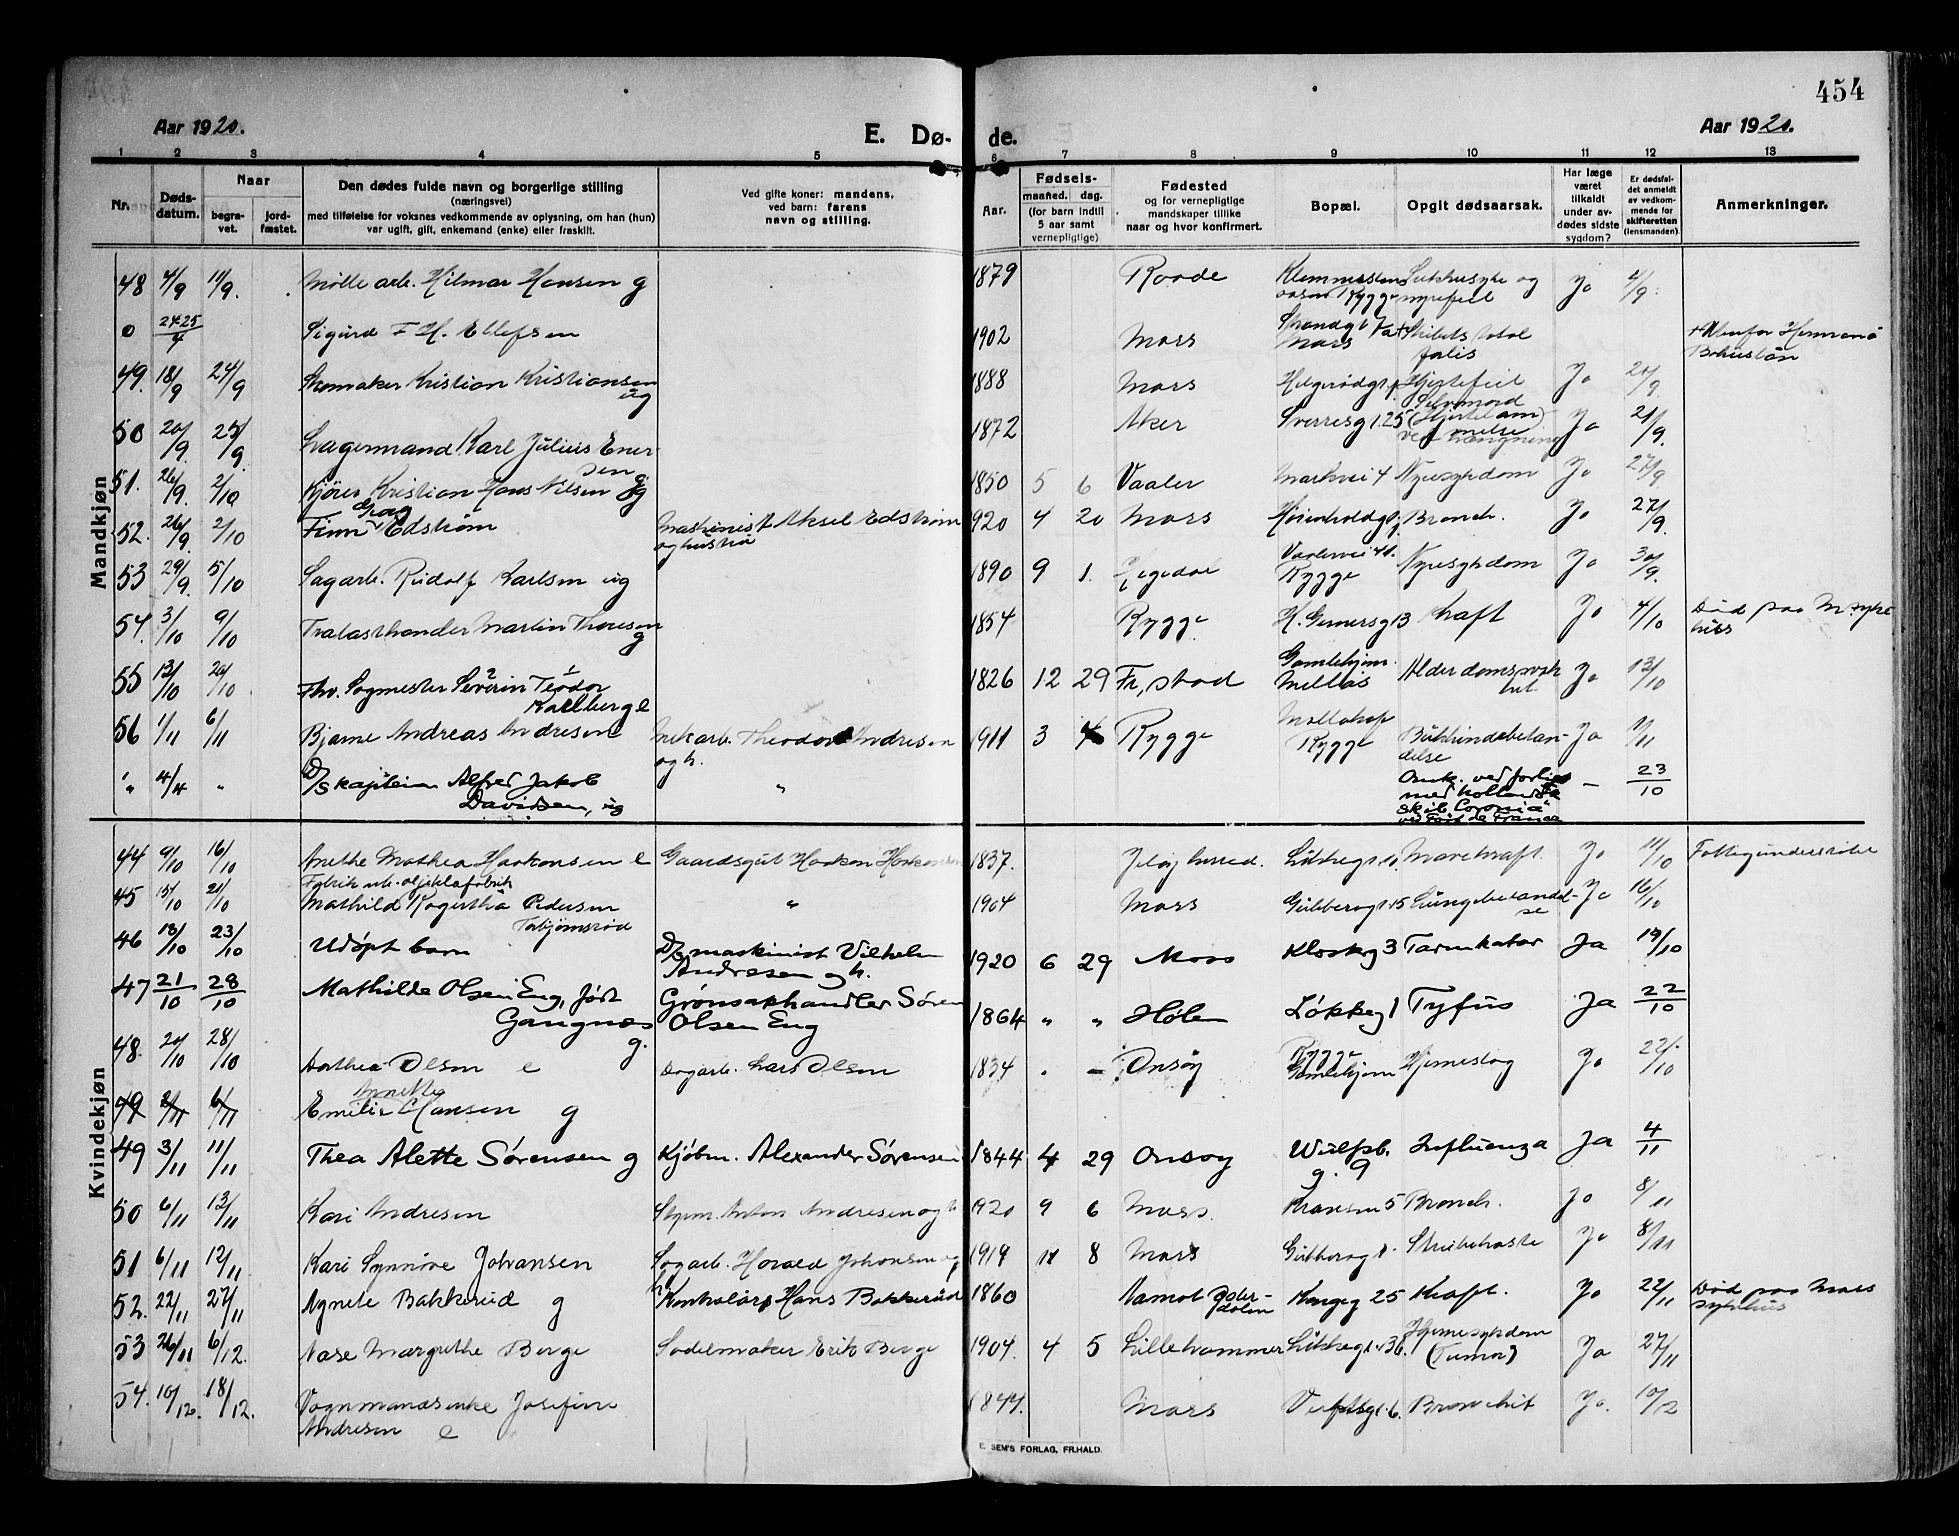 454
Aar 1920.
E. Dø- de.
Aar 1920.
1 2 3 4 5 6 7 8 9 10 11 12 13
Nr.
Døds-
datum.
Naar
begra-
vet.
jord-
fæstet.
Den dødes fulde navn og borgerlige stilling
(næringsvei)
med tilføielse for voksnes vedkommende av oplysning, om han (hun)
var ugift, gift, enkemand (enke) eller fraskilt.
Ved gifte koner: mandens,
ved barn: farens
navn og stilling.
Aar.
Fødsels-
maaned. dag.
(for barn indtil
5 aar samt
vernepligtige)
Fødested
og for vernepligtige
mandskaper tillike
naar og hvor konfirmert.
Bopæl.
Opgit dødsaarsak.
Har læge
været
tilkaldt
under av-
dødes sidste
sygdom?
Er dødsfal-
det anmeldt
av vedkom-
mende for
skifteretten
(lensmanden).
Anmerkninger.
Mandkjøn
48 4/9 11/9. Mølle arb. Hilmar Hansen g 1879 Raade Rygge Sukkersyke og nyrefeil Ja 4/9.
0 24-25/4 Sigurd F. H. Ellefsen 1902 Moss Moss
49. 18/9 24/9 Skomaker Kristian Kristiansen ug 1888 Moss Hjertefeil Ja 20/9
50 20/9 25/9 Lagermand Karl Julius Enersen g 1872 Aker Sverresg 25 Selvmord ved hængning Ja 21/9.
51. 26/9. 2/10 Kjører Kristian Hans Nilsen g 1850 5 6 Vaaler Markvei 4 Nyresygdom Ja 27/9
52. 26/9. 2/10 Finn Edstrøm Maskinist Aksel Edstrøm og hustru 1920 4 20 Moss Bronch. Ja 27/9.
53 29/9 5/10 Sagarb. Rudolf Karlsen ug 1890 9 1. Vaalervei 41. Rygge Nyresygdom Ja 30/9.
54. 3/10 9/10 Trælasthandler Martin Thoresen g 1854 Rygge. H. Gernersg 13 Kræft Ja 4/10 Død paa M. sykehus
55 13/10 20/10 Fhv. Sagmester Severin Teodor Kallberg e 1826 12 29 Fr.stad Gamlehjem. Melløs Alderdomssvakhet Ja 13/10
56 1/11 6/11 Bjarne Andreas Andresen Theodor Andresen og h. 1911 3 4 Rygge Rygge Bukhindebetændelse Ja 1/11
" 4/4 " D/S kaptein Alfred Jakob Davidsen, ug " Omk. ved forlis med hollandsk skib "Coronia" ved Fort de France – 23/10
Kvindekjøn
44 9/10 16/10 Anethe Mathea Haakonsen e Gaardsgut Haakon Haakonsen 1837. Jeløy herred. Marekræft. Ja 11/10 Fattigunderstøttet
45 15/10 21/10 Mathilde Ragnthia Pedersen Torbjørnsrød " 1904 Moss Lungebetændelse Ja 16/10
46 18/10 23/10 Udøpt barn D/S maskinist Vilhelm Andresen og h. 1920 6 29 Moss Klosterg 3 Tarmkatar Ja 19/10
47 21/10 28/10 Mathilde Olsen Eng, født Gangnæs g. Grønsakhandler Søren Olsen Eng 1864 " " Hølen Løkkeg 1 Tyfus Ja 22/10
48. 20/10 28/10 Anthea Olsen e Dagarb. Lars Olsen 1834 . – Onsøy Rygge Gamlehjem Hjerneslag Ja 22/10
49 2/11 6/11 Emilie Annette Hansen g
49 3/11 11/11 Thea Alette Sørensen g Kjøbm. Alexander Sørensen 1844 4 29 Onsøy Wulfsb. g. 9 Influenza Ja 4/11
50 6/11 13/11 Kari Andresen Styrm. Anton Andresen og h 1920 9 6 Moss. Kransen 5 Bronch. Ja 8/11
51 6/11 12/11 Kari Synnøve Johansen Sagarb. Harald Johansen og h 1919 11 8 Moss Strubehoste Ja 8/11
52. 22/11 27/11 Agnete Bakkerud g Kontrolør Hans Bakkerud 1860 Aamot Østerdalen Kongeg 25 Kræft. Ja 22/11 Død paa Moss sykehus
53 26/11 6/12. Aase Margrethe Berge Sadelmaker Erik Berge 1904. 4 5 Lillehammer Hjernesygdom (Tumor) Ja 27/11
54. 10/12. 18/12. Vognmandsenke Josefine Andresen e 1844. Moss Verftsg. 6. Bronchit Ja. 10/12
E. SEM'S FORLAG, FR.HALD.